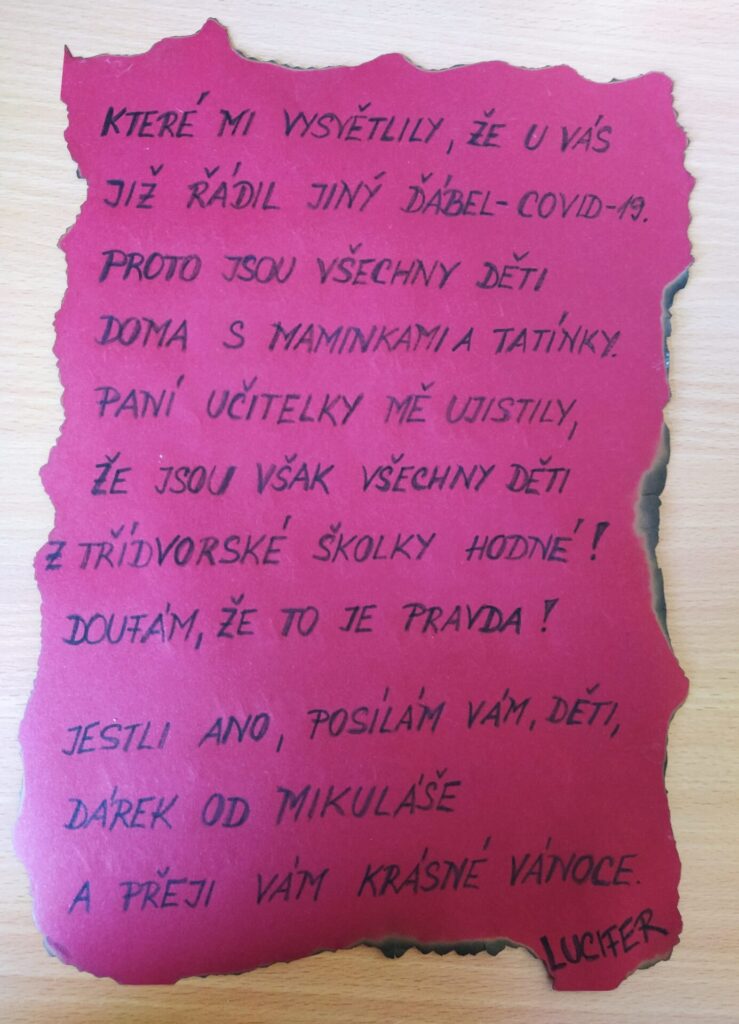 KTERÉ MI VYSVĚTLILY, ŽE U VÁS
JIŽ ŘÁDIL JINÝ ĎÁBEL-COVID-19.
PROTO JSOU VŠECHNY DĚTI
DOMA S MAMINKAMI A TATÍNKY.
PANÍ UČITELKY MĚ UJISTILY,
ŽE JSOU VŠAK VŠECHNY DĚTI
Z TŘÍDVORSKÉ ŠKOLKY HODNÉ!
DOUFÁM, ŽE TO JE PRAVDA!
JESTLI ANO, POSÍLÁM VÁM, DĚTI,
DÁREK OD MIKULÁŠE
A PŘEJI VÁM KRÁSNÉ VÁNOCE.
LUCIFER